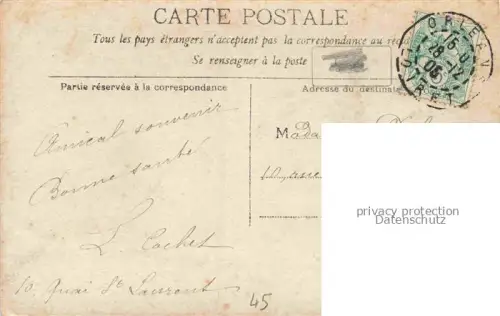 CARTE POSTALE
Tous les pays étrangers n'acceptent pas la correspondance au rec
Se renseigner à la poste
Partie réservée à la correspondance
Adresse du destinata
Amical souvenir
Bonne santé
L. Cachet
10 Quai St Laurent
Mada
45
ORLEANS
privacy protection
oldthing.com